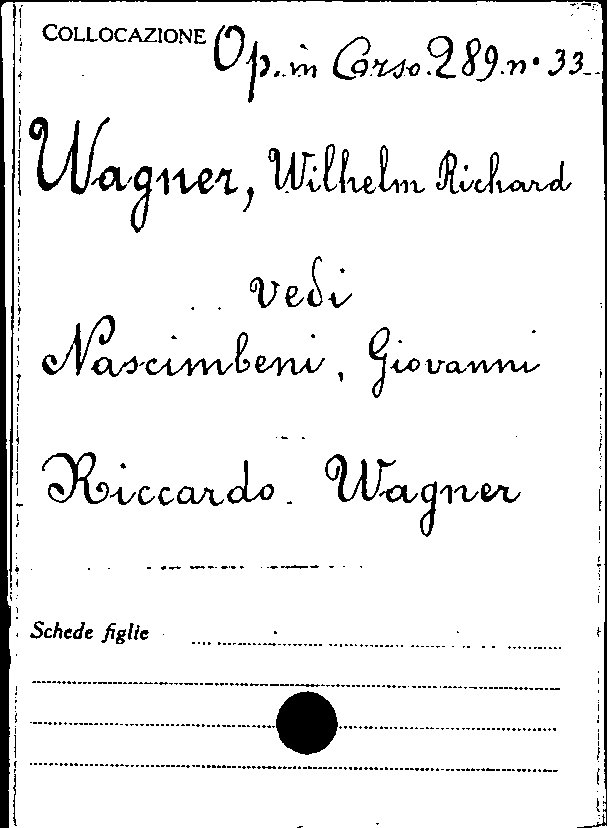 COLLOCAZIONE Op. in Corso. 289. n. 33
Wagner, Wilhelm Richard
vedi
Nascimbeni, Giovanni
Riccardo Wagner
Schede figlie